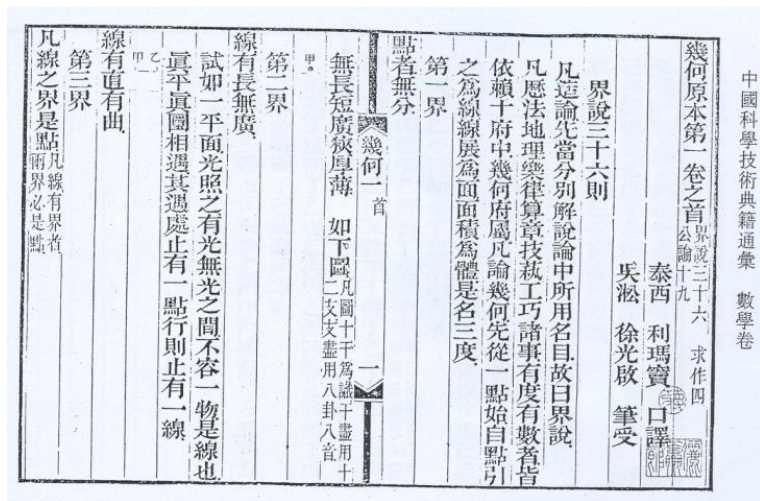 中國科學技術典籍通彙 數學卷
幾何原本第一卷之首 界說三十六 求作四
公論十九
泰西 利瑪竇 口譯
吳淞 徐光啟 筆受
界說三十六則
凡造論先當分別解說論中所用名目故曰界說
凡厯法地理樂律算章技藝工巧諸事有度有數者皆
依賴十府中幾何府屬凡論幾何先從一點始自點引
之爲線線展爲面面積爲體是名三度
第一界
點者無分
幾何一 首 一
無長短廣狹厚薄 如下圖 凡圖十干爲識干盡用十
二支支盡用八卦八音
甲
第二界
線有長無廣
試如一平面光照之有光無光之間不容一物是線也
眞平眞圜相遇其遇處止有一點行則止有一線
乙 甲
線有直有曲
第三界
凡線之界是點 凡線有界者
兩界必是點